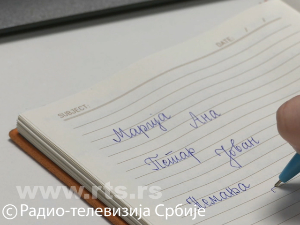 SUBJECT
DATE: / /
Марија Ана
Петар Јован
Немања
www.rts.rs
© Радио-телевизија Србије